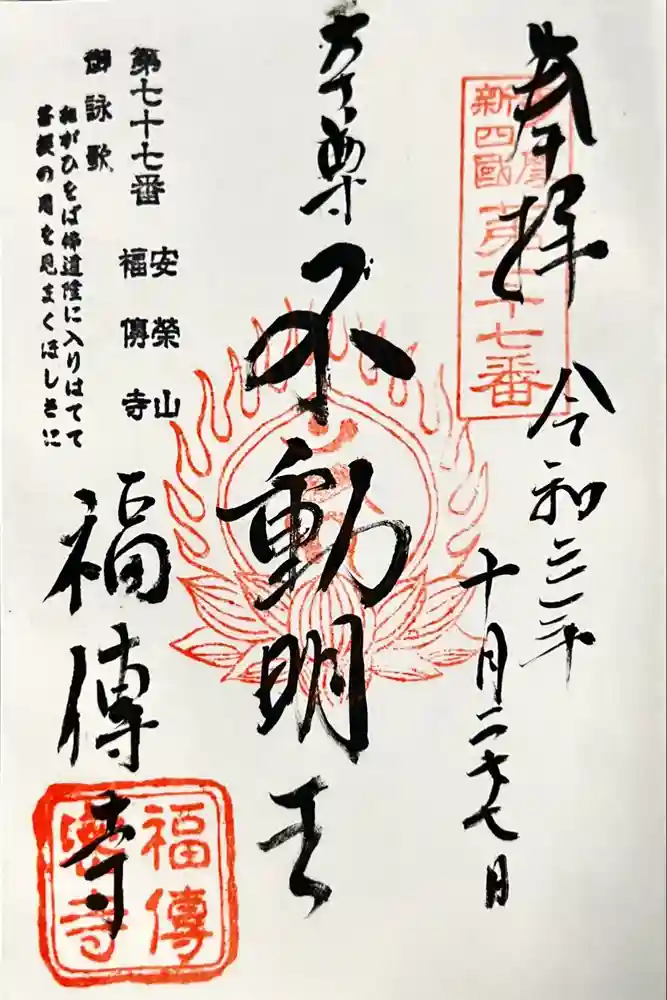 奉拝
新四國
番
令和三年
十月二十七日
不動明王
第七十七番
安榮山
福傳寺
御詠歌
ねがひをば佛道隆に入りはてて
菩提の月を見まくほしさに
福傳寺
福傳
寺